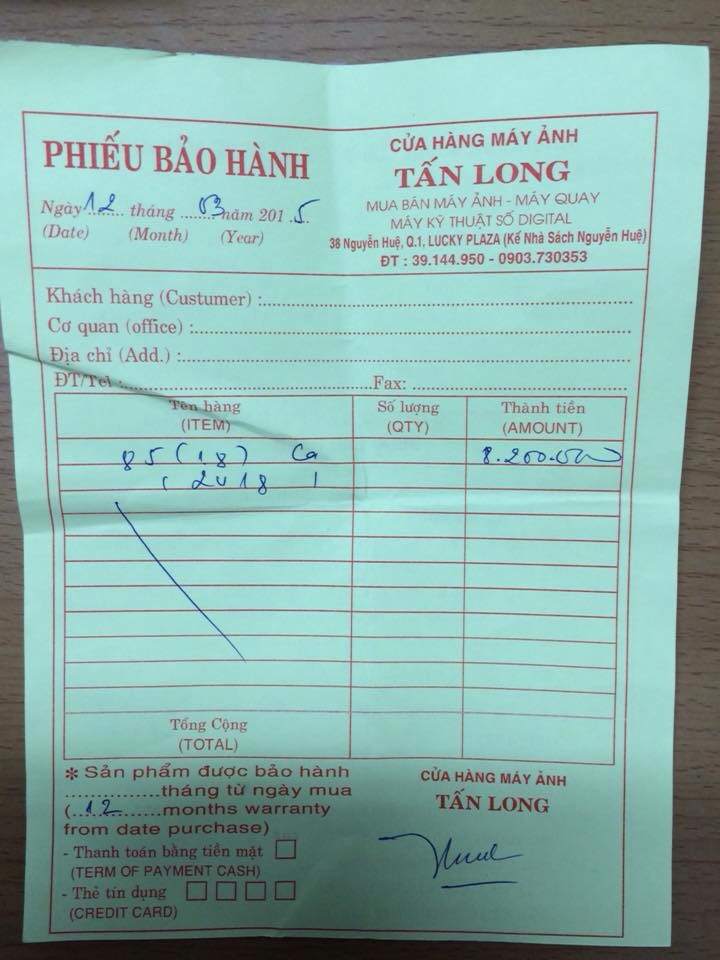 PHIẾU BẢO HÀNH
Ngày 12 tháng 03 năm 2015
(Date) (Month) (Year)
CỬA HÀNG MÁY ẢNH
TẤN LONG
MUA BÁN MÁY ẢNH - MÁY QUAY
MÁY KỸ THUẬT SỐ DIGITAL
38 Nguyễn Huệ, Q.1, LUCKY PLAZA (Kế Nhà Sách Nguyễn Huệ)
ĐT : 39.144.950 - 0903.730353
Khách hàng (Custumer) :
Cơ quan (office) :
Địa chỉ (Add.) :
ĐT/Tel : Fax:
Tên hàng Số lượng Thành tiền
(ITEM) (QTY) (AMOUNT)
85 (18) Ca 8.200.000
Tổng Cộng
(TOTAL)
* Sản phẩm được bảo hành
tháng từ ngày mua
(12 months warranty
from date purchase)
- Thanh toán bằng tiền mặt
(TERM OF PAYMENT CASH)
- Thẻ tín dụng
(CREDIT CARD)
CỬA HÀNG MÁY ẢNH
TẤN LONG